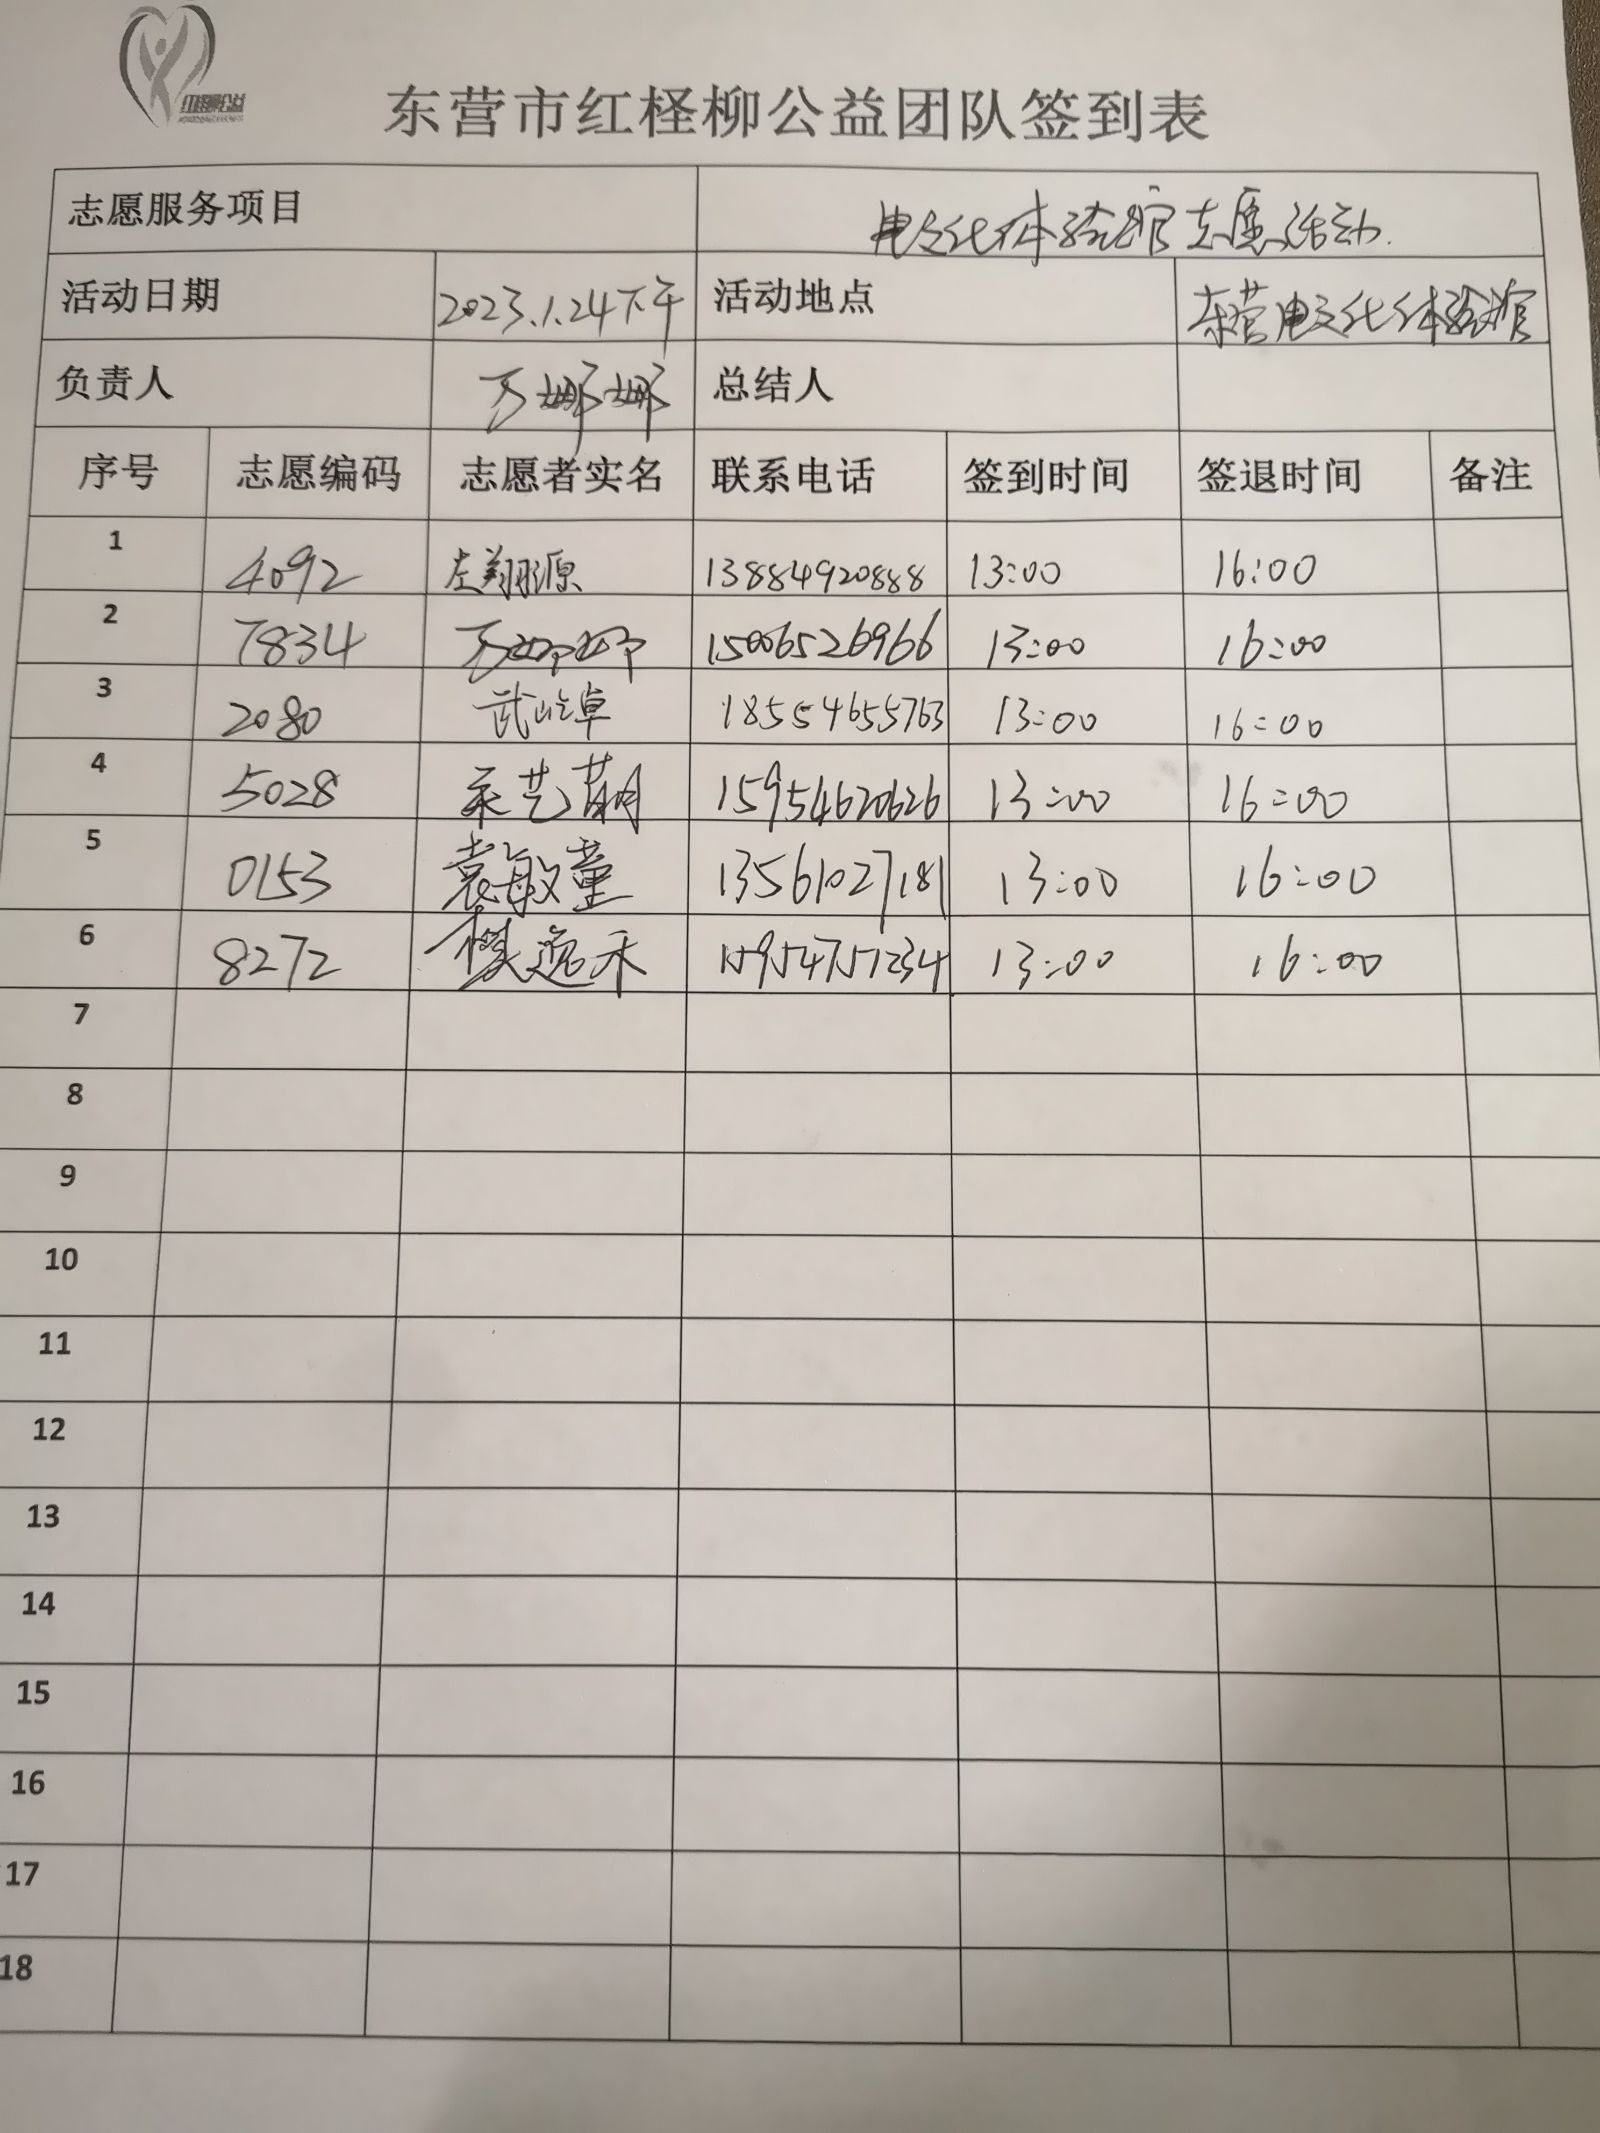 东营市红柽柳公益团队签到表
志愿服务项目 电文化体验馆志愿活动.
活动日期 2023.1.24下午 活动地点 东营电文化体验馆
负责人 万娜娜 总结人
序号 志愿编码 志愿者实名 联系电话 签到时间 签退时间 备注
1 4092 左翔源 13884920888 13:00 16:00
2 7834 万娜娜 15006526966 13:00 16:00
3 2080 武屹卓 18554655763 13:00 16:00
4 5028 艺萌 15954620626 13:00 16:00
5 0153 袁敏童 13561027181 13:00 16:00
6 8272 逸禾 15954751234 13:00 16:00
7
8
9
10
11
12
13
14
15
16
17
18